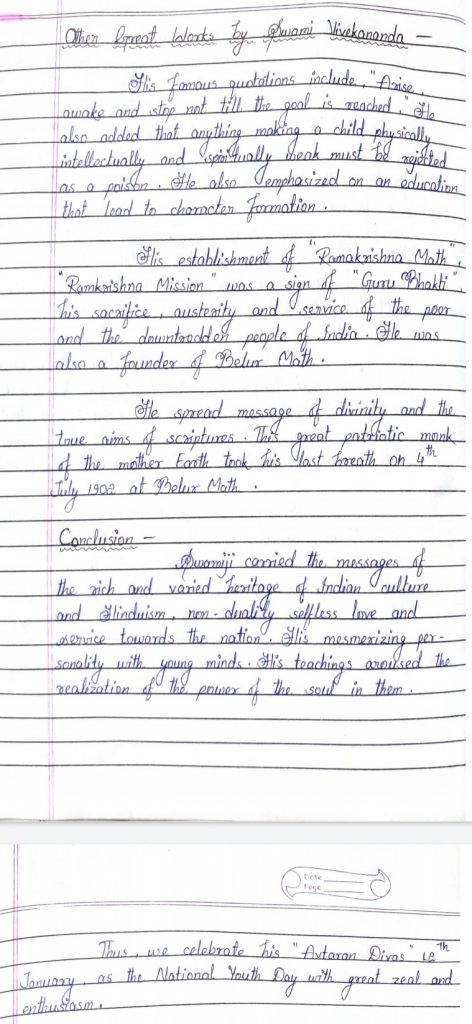 Other Great Works by Swami Vivekananda –
His famous quotations include, "Arise,
awake and stop not till the goal is reached." He
also added that anything making a child physically
intellectually and spiritually weak must be rejected
as a poison. He also emphasized on an education
that lead to character formation.
His establishment of "Ramakrishna Math",
"Ramkrishna Mission" was a sign of "Guru Bhakti",
his sacrifice, austerity and service of the poor
and the downtrodden people of India. He was
also a founder of Belur Math.
He spread message of divinity and the
true aims of scriptures. This great patriotic monk
of the mother Earth took his last breath on 4th
July 1902 at Belur Math.
Conclusion –
Swamiji carried the messages of
the rich and varied heritage of Indian culture
and Hinduism, non-duality selfless love and
service towards the nation. His mesmerizing per-
sonality with young minds. His teachings aroused the
realization of the power of the soul in them.
Date
Page
Thus, we celebrate his "Avtaran Divas" 12th
January, as the National Youth Day with great zeal and
enthusiasm.